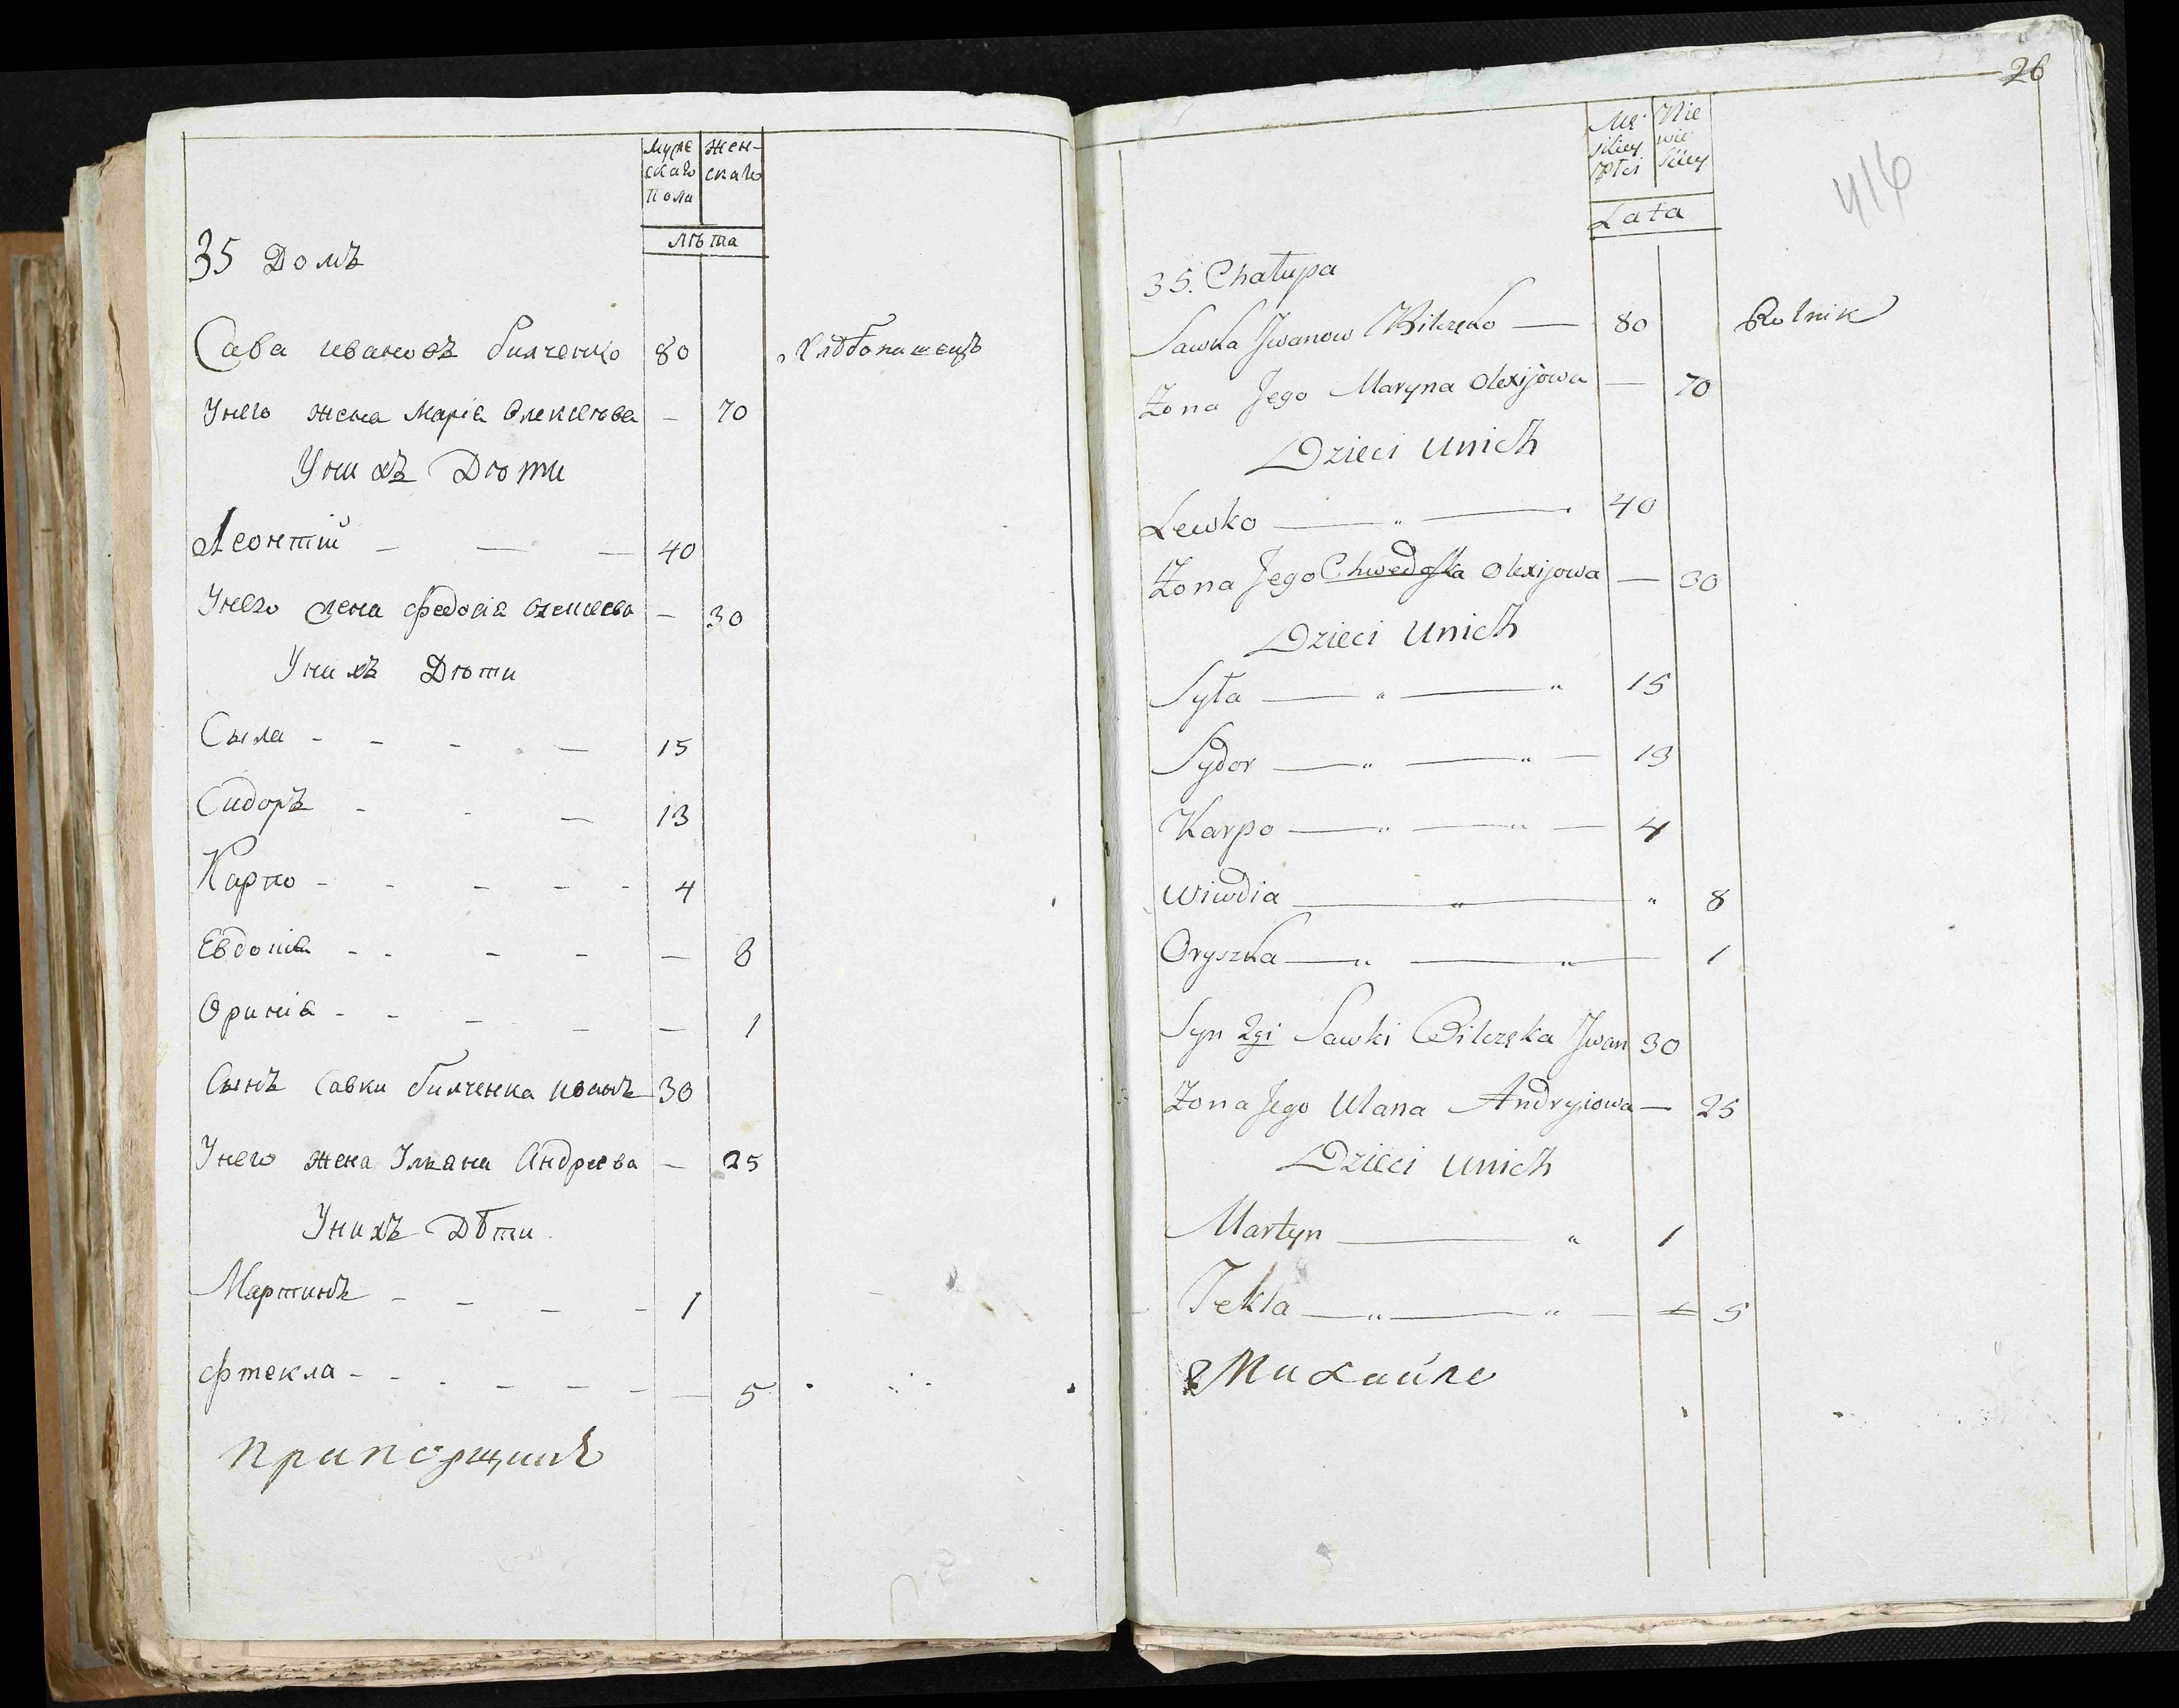 Муже Жен-
скаго скаго
Пола
лѣта
35 Домъ
Сава ивановъ билченко 80 хлѣбопашецъ
Унего жена Марiя Олексѣева — 70
Унихъ Дѣти
Леонтiй - — — 40
Унего жена федосiя олексеева — 30
Унихъ Дѣти
Сыла - - - - — 15
Сидоръ - - — 13
Карпо - - - - - 4
Евдокiя - - - - — 8
Оринiя - - - - — 1
Сынъ Савки билченка иванъ 30
Унего жена Ульяна Андреева — 25
Унихъ Дѣти
Мартинъ - - - - 1
фтекла - - - - - - — 5
прапорщикъ
26
416
Mę- Nie
skiey wie
Płci ściey
Lata
35. Chałupa
Sawka Jwanow Bilczęko — 80 Rolnik
Żona Jego Maryna Olexijowa — 70
Dzieci unich
Lewko — " — 40
Żona Jego Chwedoska Olexijowa — 30
Dzieci unich
Syła — " — " 15
Sydor — " — " — 13
Karpo — " — " — 4
Wiwdia — " — " 8
Oryszka — " — " — 1
Syn 2gi Sawki Bilczęka Jwan 30
Żona Jego Ulana Andryiowa — 25
Dzieci unich
Martyn — " 1
Tekla — " — " — 5
Михайло